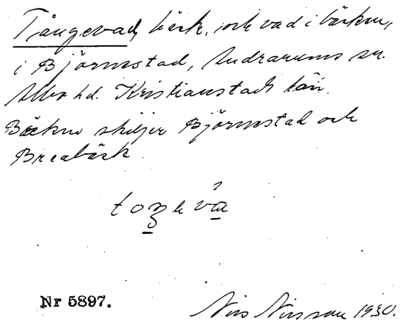 Tångevad, bäck, och vad i bäcken,
i Björnstad, Andrarums sn.
Albo hd. Kristianstads län.
Bäcken skiljer Björnstad och
Bredbäck.
Nr 5897.
Nils Nilsson 1930.